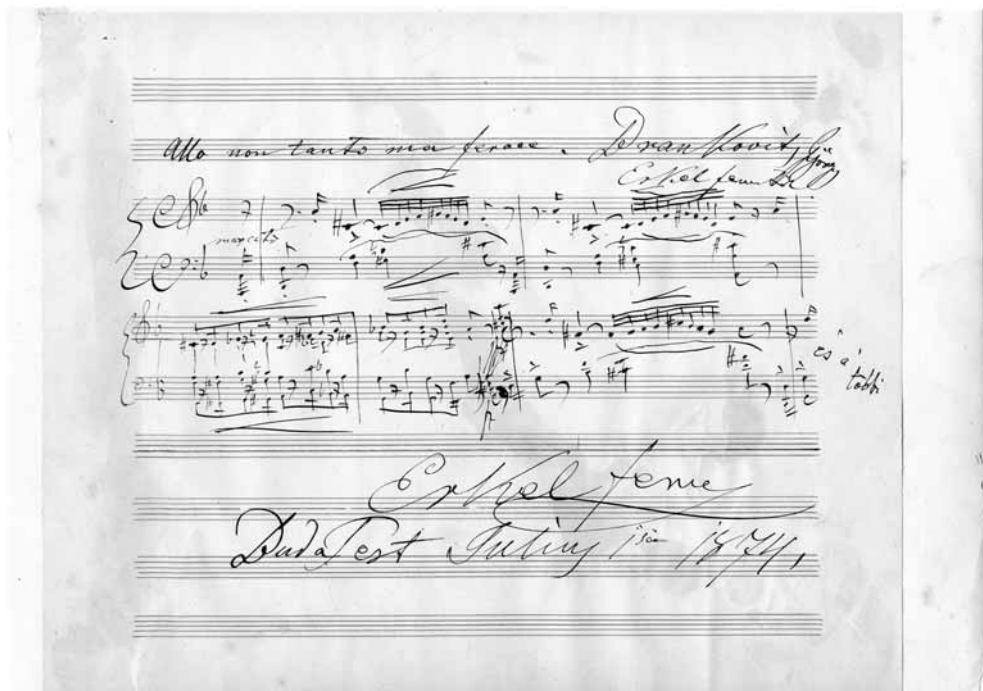 Allo non tanto ma feroce. Brankovits György
Erkel ferencztől
marcato
és a'
többi
Erkel ferenc
BudaPest Julius 1sőn 1874.